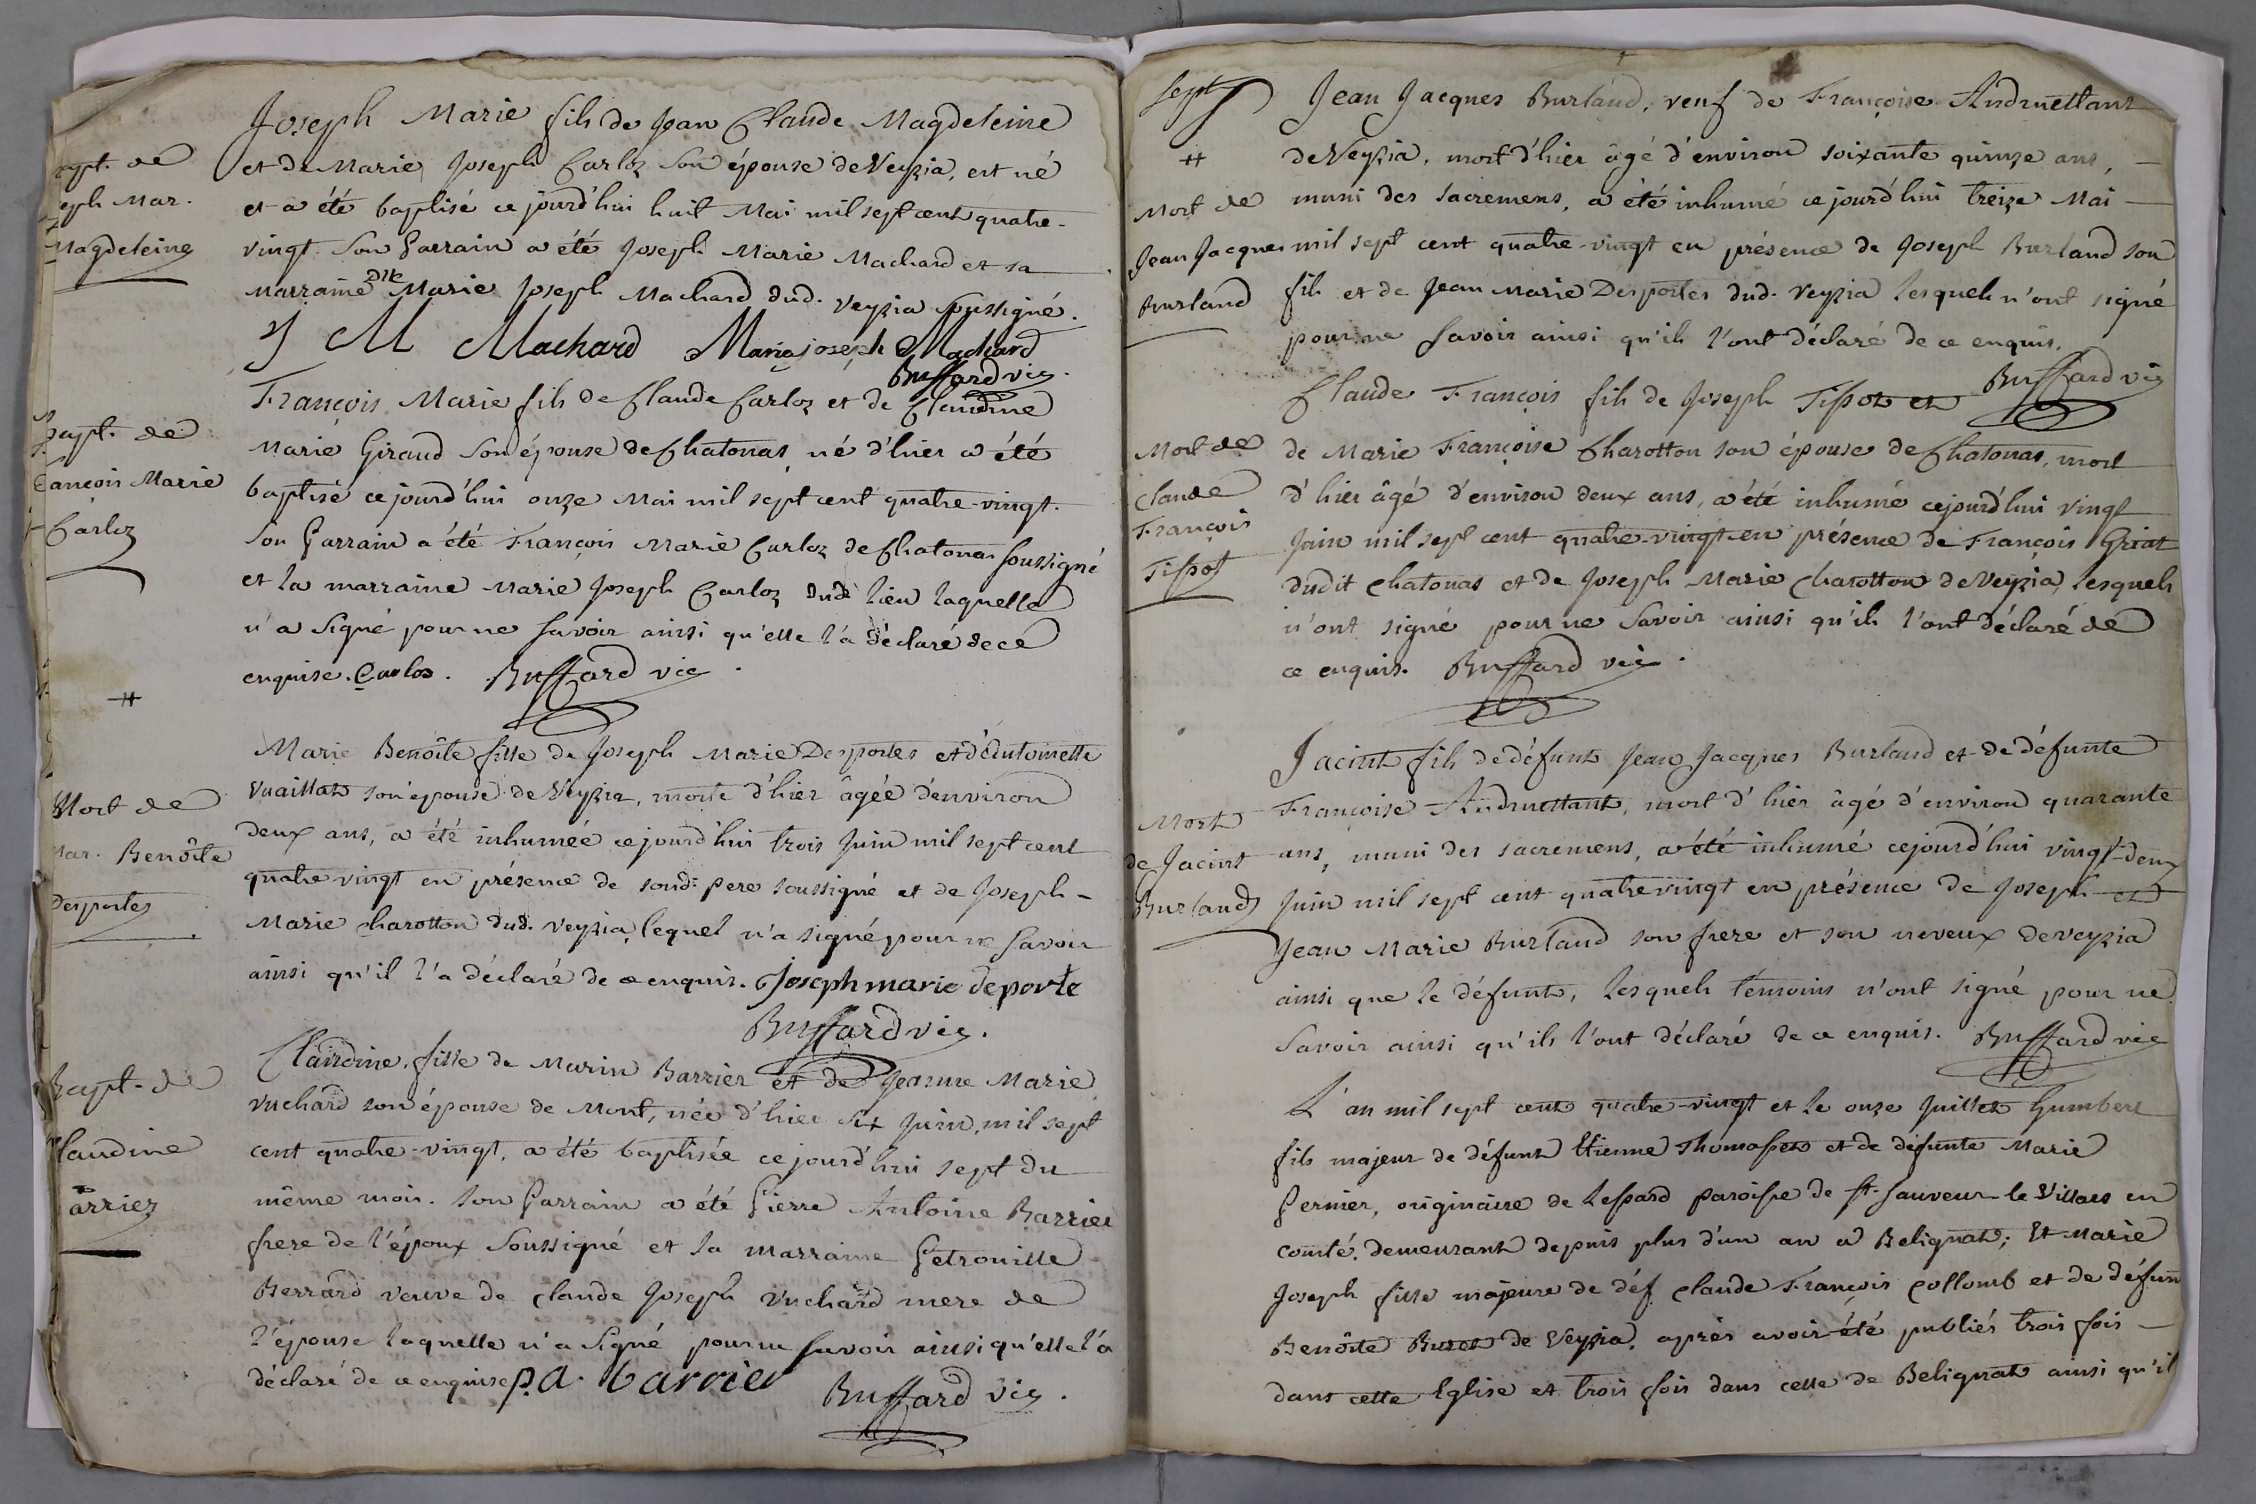 Joseph Marie fils de Jean Claude Magdeleine
et de Marie Joseph Carloz son épouse de Veyzia, est né
et a été baptisé ce jourd'hui huit Mai mil sept cent quatre-
vingt. Son Parrain a été Joseph Marie Machard et sa
marraine dlle Marie Joseph Machard dud. Veyzia soussigné.
J M Machard Maria joseph Machard
Buffard vic.
apt. de
eph Mar.
Magdeleine
François Marie fils de Claude Carloz et de Claudine
Marie Giraud son épouse de Chatonas, né d'hier a été
baptisé ce jourd'hui onze Mai mil sept cent quatre-vingt.
Son Parrain a été François Marie Carloz de Chatonas soussigné
et la marraine Marie Joseph Carloz dud. lieu laquelle
n'a signé pour ne savoir ainsi qu'elle l'a déclaré de ce
enquise. Carlos. Buffard vic.
Bapt. de
rançois Marie
Carloz
Marie Benoîte fille de Joseph Marie Desportes et d'Antoinette
Vuaillat son épouse de Veyzia, morte d'hier âgée d'environ
deux ans, a été inhumée ce jourd'hui trois Juin mil sept cent
quatre vingt en présence de sond. pere soussigné et de Joseph-
Marie Charotton dud. Veyzia, lequel n'a signé pour ne savoir
ainsi qu'il l'a déclaré de ce enquis. Joseph marie deporte
Buffard vic.
Mort de
Mar. Benôite
Desportes
Claudine, fille de Marin Barrier et de Jeanne Marie
Vuchard son épouse de Mont, née d'hier six Juin, mil sept
cent quatre-vingt, a été baptisée ce jourd'hui sept du
même mois. Son Parrain a été Pierre Antoine Barrier
frere de l'époux soussigné et la marraine Petronille
Berrard veuve de Claude Joseph Vuchard mere de
l'épouse laquelle n'a signé pour ne savoir ainsi qu'elle l'a
déclaré de ce enquise. p. a. barrier
Buffard vic.
Bapt. de
laudine
arrier
sept
Jean Jacques Burland, veuf de Françoise Andruettant
de Veyzia, mort d'hier âgé d'environ soixante quinze ans,
muni des sacremens, a été inhumé ce jourd'hui treize Mai
mil sept cent quatre-vingt en présence de Joseph Burland son
fils et de Jean Marie Desportes dud. Veyzia lesquels n'ont signé
pour ne savoir ainsi qu'ils l'ont déclaré de ce enquis.
Buffard vic
Mort de
Jean Jacques
Burland
Claude François fils de Joseph Tissot et
de Marie Françoise Charotton son épouse de Chatonas, mort
d'hier âgé d'environ deux ans, a été inhumé cejourd'hui vingt
Juin mil sept cent quatre-vingt en présence de François Griat
dudit Chatonas et de Joseph Marie Charotton de Veyzia, lesquels
n'ont signé pour ne savoir ainsi qu'ils l'ont déclaré de
ce enquis. Buffard vic.
Mort de
Claude
François
Tissot
Jacint fils de défunt Jean Jacques Burland et de défunte
Françoise Andruettant, mort d'hier âgé d'environ quarante
ans, muni des sacremens, a été inhumé cejourd'hui vingt-deux
Juin mil sept cent quatre vingt en présence de Joseph et
Jean Marie Burland son frere et son neveux de Veyzia
ainsi que le défunt, lesquels témoins n'ont signé pour ne
savoir ainsi qu'ils l'ont déclaré de ce enquis. Buffard vic
Mort
de Jacint
Burland
L'an mil sept cent quatre-vingt et le onze Juillet Humbert
fils majeur de défunt Etienne Thomasset et de défunte Marie
Pernier, originaire de Lessard paroisse de St. Sauveur-le Villars en
comté, demeurant depuis plus d'un an a Belignat; Et Marie
Joseph fille majeure de déf. Claude François Collomb et de défun
Benôite Buret de Veyzia, après avoir été publiés trois fois
dans cette Eglise et trois fois dans celle de Belignat ainsi qu'il